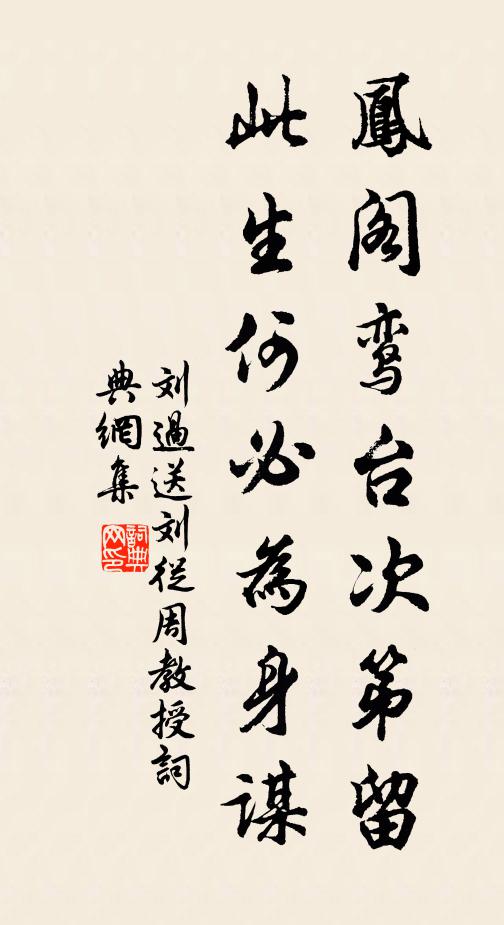 鳳閣鸾台次第留
此生何必為身謀
刘過送刘従周教授詞
典網集
詞典网印